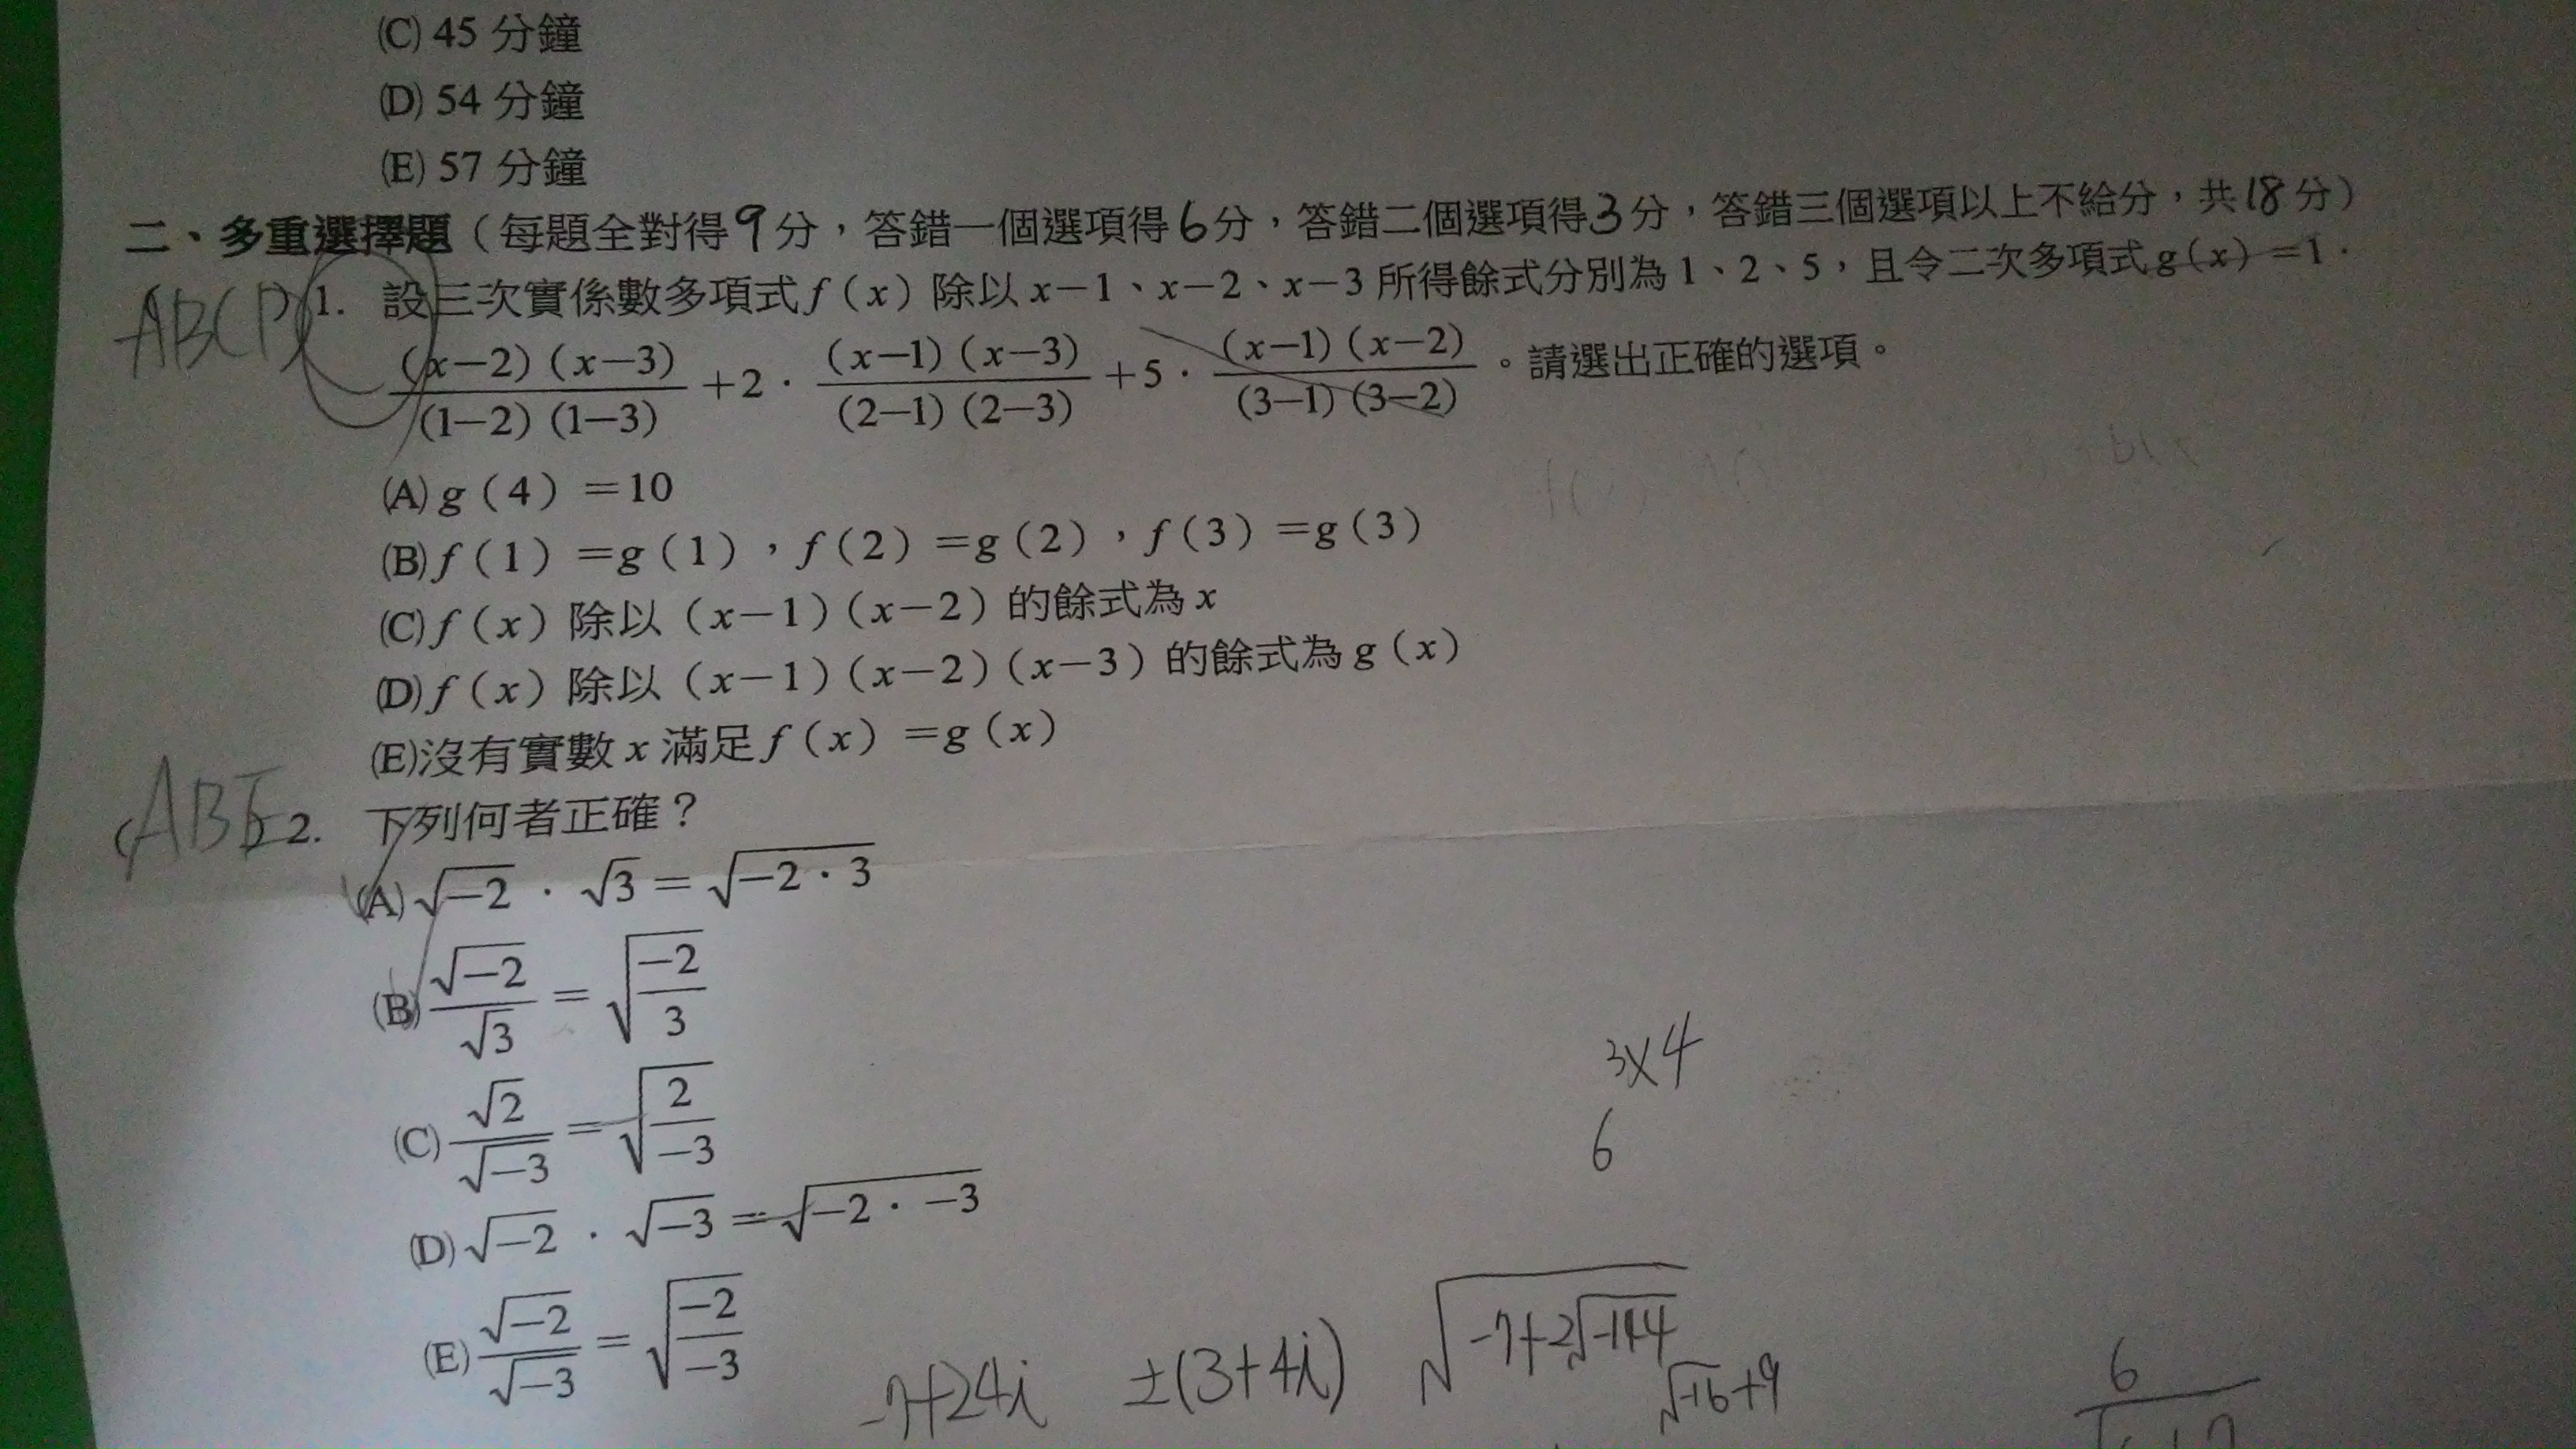 (C) 45 分鐘
(D) 54 分鐘
(E) 57 分鐘
二、多重選擇題（每題全對得9分，答錯一個選項得6分，答錯二個選項得3分，答錯三個選項以上不給分，共18分）
ABCD 1. 設三次實係數多項式 f（x）除以 x－1、x－2、x－3 所得餘式分別為 1、2、5，且令二次多項式 g（x）＝1．
(x－2)(x－3)/(1－2)(1－3) ＋2．(x－1)(x－3)/(2－1)(2－3) ＋5．(x－1)(x－2)/(3－1)(3－2)。請選出正確的選項。
(A) g（4）＝10
(B) f（1）＝g（1），f（2）＝g（2），f（3）＝g（3）
(C) f（x）除以（x－1）（x－2）的餘式為 x
(D) f（x）除以（x－1）（x－2）（x－3）的餘式為 g（x）
(E)沒有實數 x 滿足 f（x）＝g（x）
(ABE 2. 下列何者正確？
(A) √−2 · √3 = √−2 · 3
(B) √−2/√3 = √(−2/3)
(C) √2/√−3 = √(2/−3)
(D) √−2 · √−3 = √−2 · −3
(E) √−2/√−3 = √(−2/−3)
3×4
6
-7+24i
±(3+4i)
√-7+2√-144
√-16+9
6